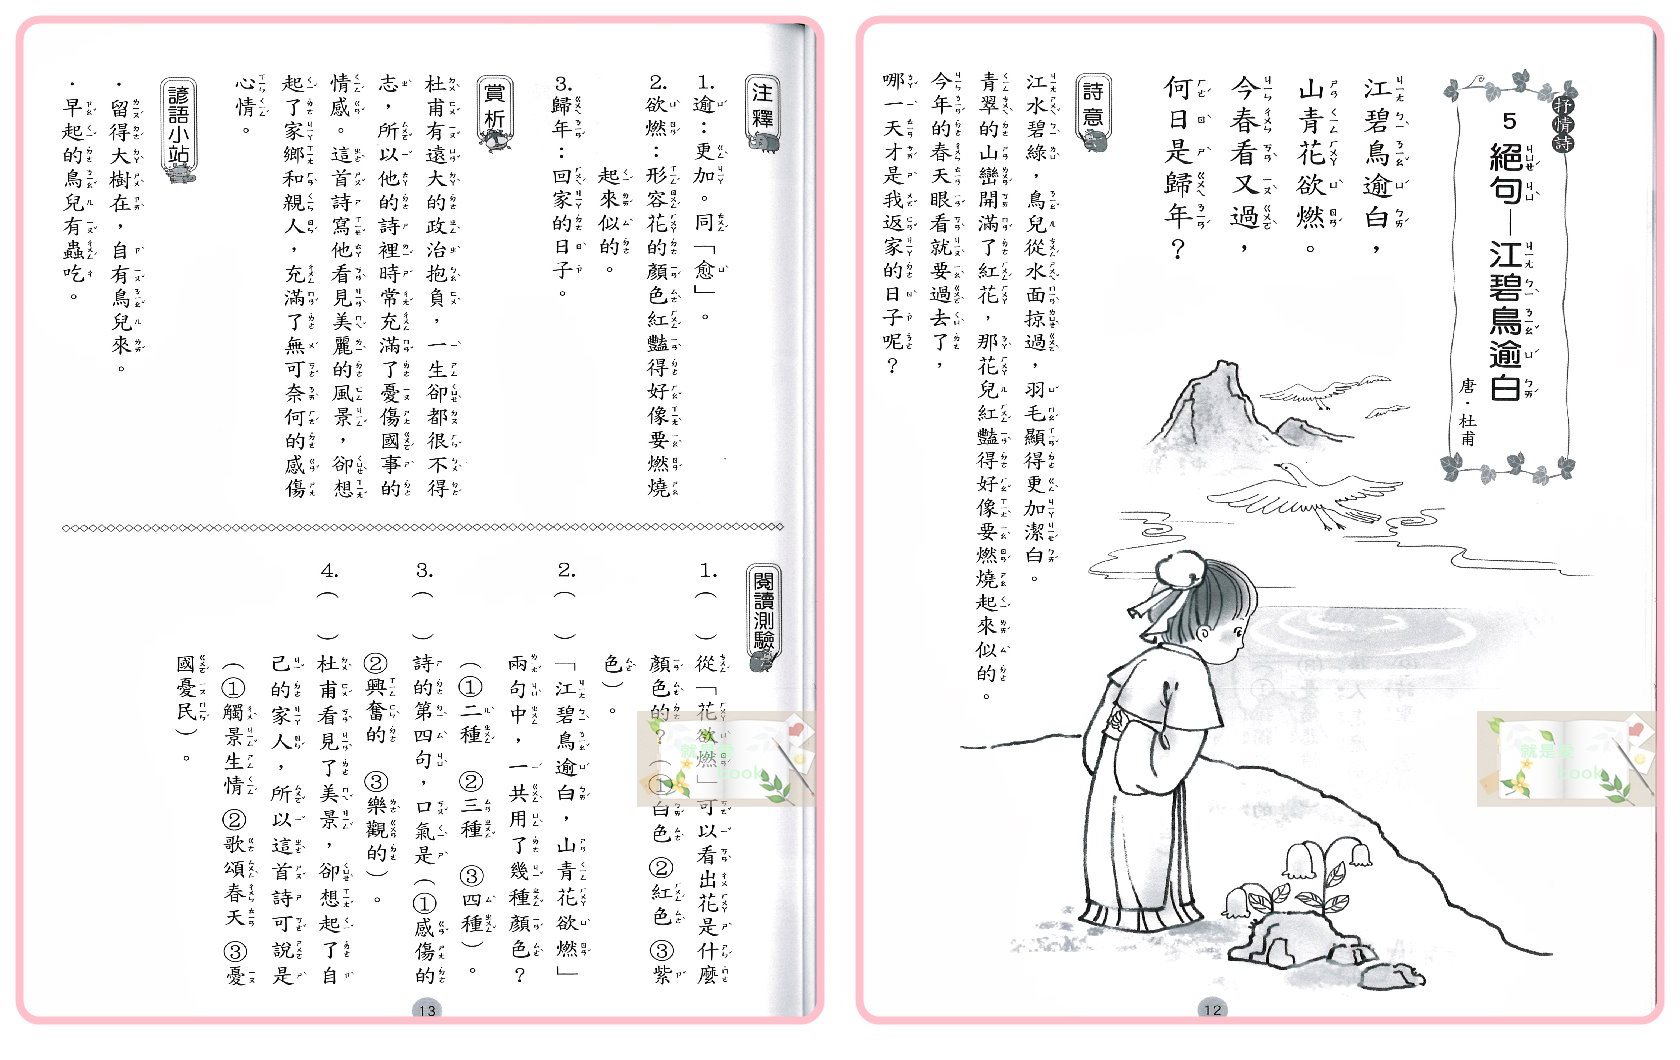 抒情詩
5 絕句—江碧鳥逾白
唐·杜甫
江碧鳥逾白，
山青花欲燃。
今春看又過，
何日是歸年？
詩意
江水碧綠，鳥兒從水面掠過，羽毛顯得更加潔白。
青翠的山巒開滿了紅花，那花兒紅豔得好像要燃燒起來似的。
今年的春天眼看就要過去了，
哪一天才是我返家的日子呢？
12
注釋
1.逾：更加。同「愈」。
2.欲燃：形容花的顏色紅豔得好像要燃燒
起來似的。
3.歸年：回家的日子。
賞析
杜甫有遠大的政治抱負，一生卻都很不得
志，所以他的詩裡時常充滿了憂傷國事的
情感。這首詩寫他看見美麗的風景，卻想
起了家鄉和親人，充滿了無可奈何的感傷
心情。
諺語小站
·留得大樹在，自有鳥兒來。
·早起的鳥兒有蟲吃。
閱讀測驗
1.（　）從「花欲燃」可以看出花是什麼
顏色的？（①白色 ②紅色 ③紫
色）。
2.（　）「江碧鳥逾白，山青花欲燃」
兩句中，一共用了幾種顏色？
（①二種 ②三種 ③四種）。
3.（　）詩的第四句，口氣是（①感傷的
②興奮的 ③樂觀的）。
4.（　）杜甫看見了美景，卻想起了自
己的家人，所以這首詩可說是
（①觸景生情 ②歌頌春天 ③憂
國憂民）。
13
就是愛
book
就是愛
book